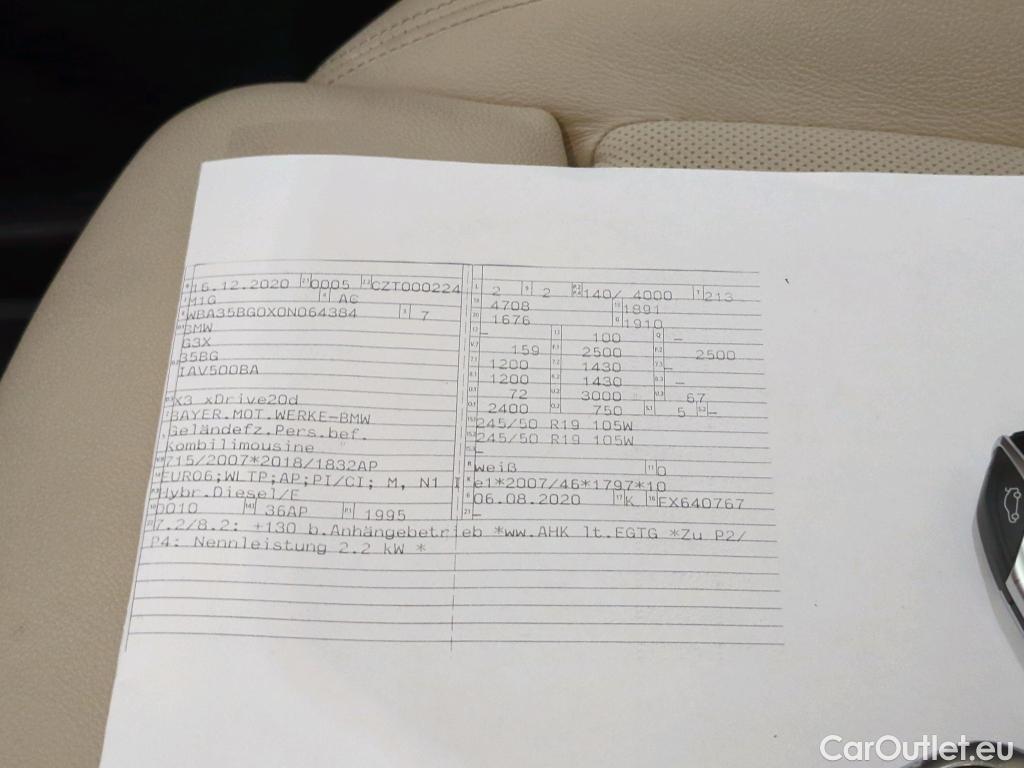 16.12.2020 0005 CZT000224
M1G AC
WBA35BG0X0N064384 7
BMW
G3X
35BG
IAV500BA
X3 xDrive20d
BAYER.MOT.WERKE-BMW
Geländefz.Pers.bef.
Kombilimousine
715/2007*2018/1832AP
EURO6;WLTP;AP;PI/CI; M, N1 I
Hybr.Diesel/E
0010 36AP 1995
2 2 140/ 4000 213
4708 1891
1676 1910
– 100 –
159 2500 2500
1200 1430 –
1200 1430 –
72 3000 67
2400 750 5 –
245/50 R19 105W
245/50 R19 105W
–
weiß 0
e1*2007/46*1797*10
06.08.2020 K FX640767
–
7.2/8.2: +130 b.Anhängebetrieb *ww.AHK lt.EGTG *Zu P2/
P4: Nennleistung 2.2 kW *
CarOutlet.eu